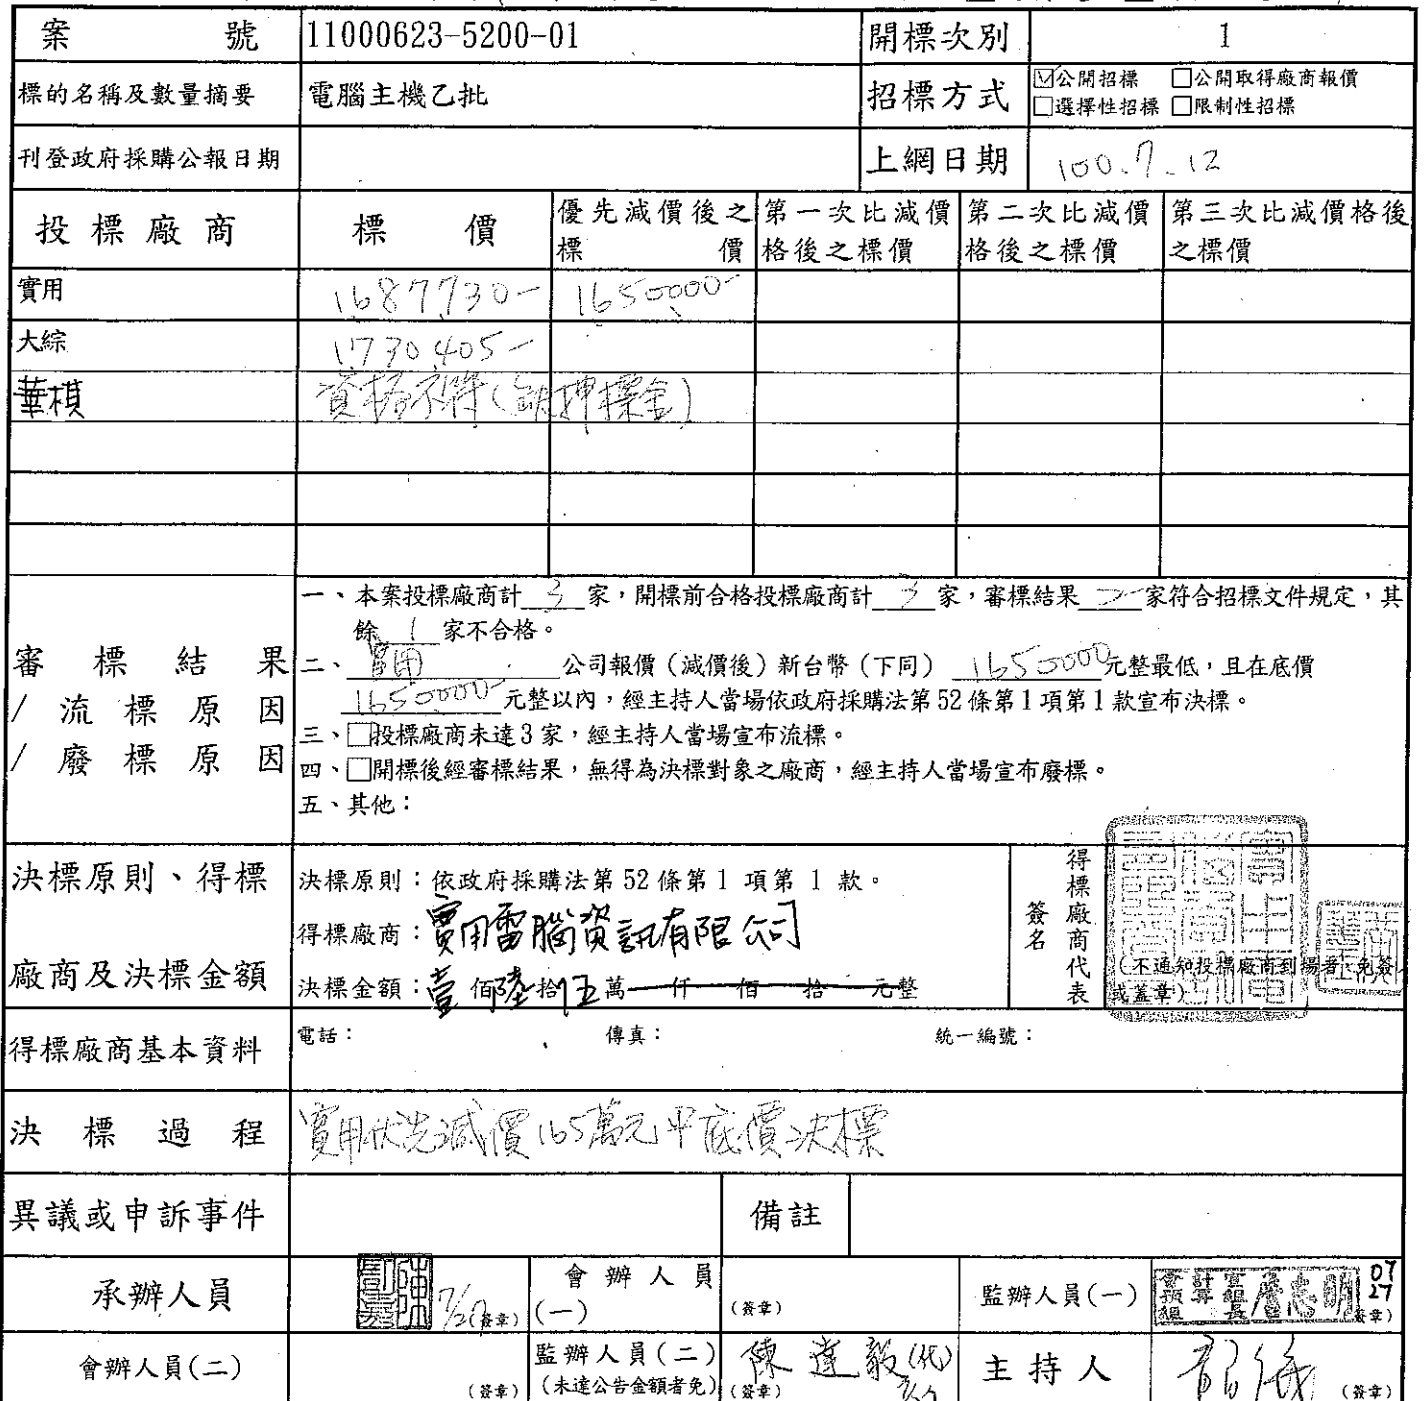 案 號 11000623-5200-01 開標次別 1
標的名稱及數量摘要 電腦主機乙批 招標方式 ☑公開招標 □公開取得廠商報價
□選擇性招標 □限制性招標
刊登政府採購公報日期 上網日期 100.7.12
投標廠商 標 價 優先減價後之標 價 第一次比減價格後之標價 第二次比減價格後之標價 第三次比減價格後之標價
實用 1687730- 1650000-
大綜 1730405-
華棋 資格不符(缺押標金)
審標結果
/流標原因
/廢標原因
一、本案投標廠商計 3 家,開標前合格投標廠商計 3 家,審標結果 2 家符合招標文件規定,其
餘 1 家不合格。
二、 實用 公司報價(減價後)新台幣(下同) 1650000 元整最低,且在底價
1650000- 元整以內,經主持人當場依政府採購法第52條第1項第1款宣布決標。
三、□投標廠商未達3家,經主持人當場宣布流標。
四、□開標後經審標結果,無得為決標對象之廠商,經主持人當場宣布廢標。
五、其他:
決標原則、得標
廠商及決標金額
決標原則:依政府採購法第52條第1項第1款。
得標廠商:實用電腦資訊有限公司
決標金額:壹佰陸拾伍萬 仟 佰 拾 元整
得標廠商代表
簽名
(不通知投標廠商到場者,免簽
或蓋章)
得標廠商基本資料 電話: 傳真: 統一編號:
決標過程 實用優先減價165萬元平底價決標
異議或申訴事件 備註
承辦人員 7/27 (簽章) 會辦人員(一) (簽章) 監辦人員(一) 詹志明 07 27 (簽章)
會辦人員(二) (簽章) 監辦人員(二) (未達公告金額者免) 陳達毅(代) (簽章) 主持人 (簽章)